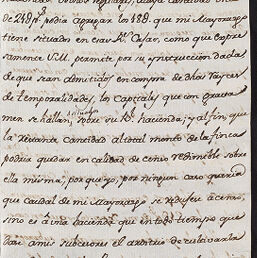 de 248 p.s podia agregar los 488. que mi Mayorazgo
tiene situados en esas R.s Caxas, como que expre
samente V.M. permite por su instruccion dada
de que sean admitidos en compra de dhas Fincas
de temporalidades, los Capitales que con grava
men se hallan situados sobre su R.l hacienda; y al fin que
la restante cantidad al total monto de la finca
podria quedar en calidad de censo redimible sobre
ella misma; por que yo, por ningun caso querria
que caudal de mi Mayorazgo se reduxese a censo,
sino es á una hacienda que en todo tiempo que
dase a mis subcesores el arbitrio de